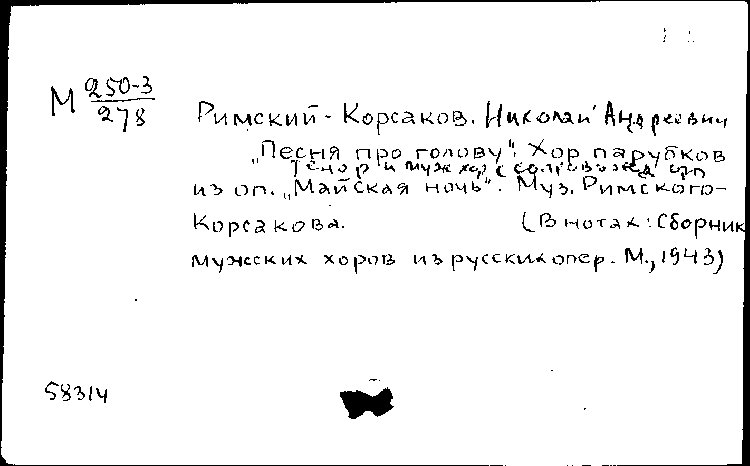 М 250-3
278
Римский - Корсаков. Николай Андреевич
„Песня про голову". Хор парубков
Тенор и муж хор с сопровожд
из оп. „Майская ночь". Муз. Римского-
Корсакова. (В нотах: Сборник
мужских хоров из русских опер. М., 1943)
58314